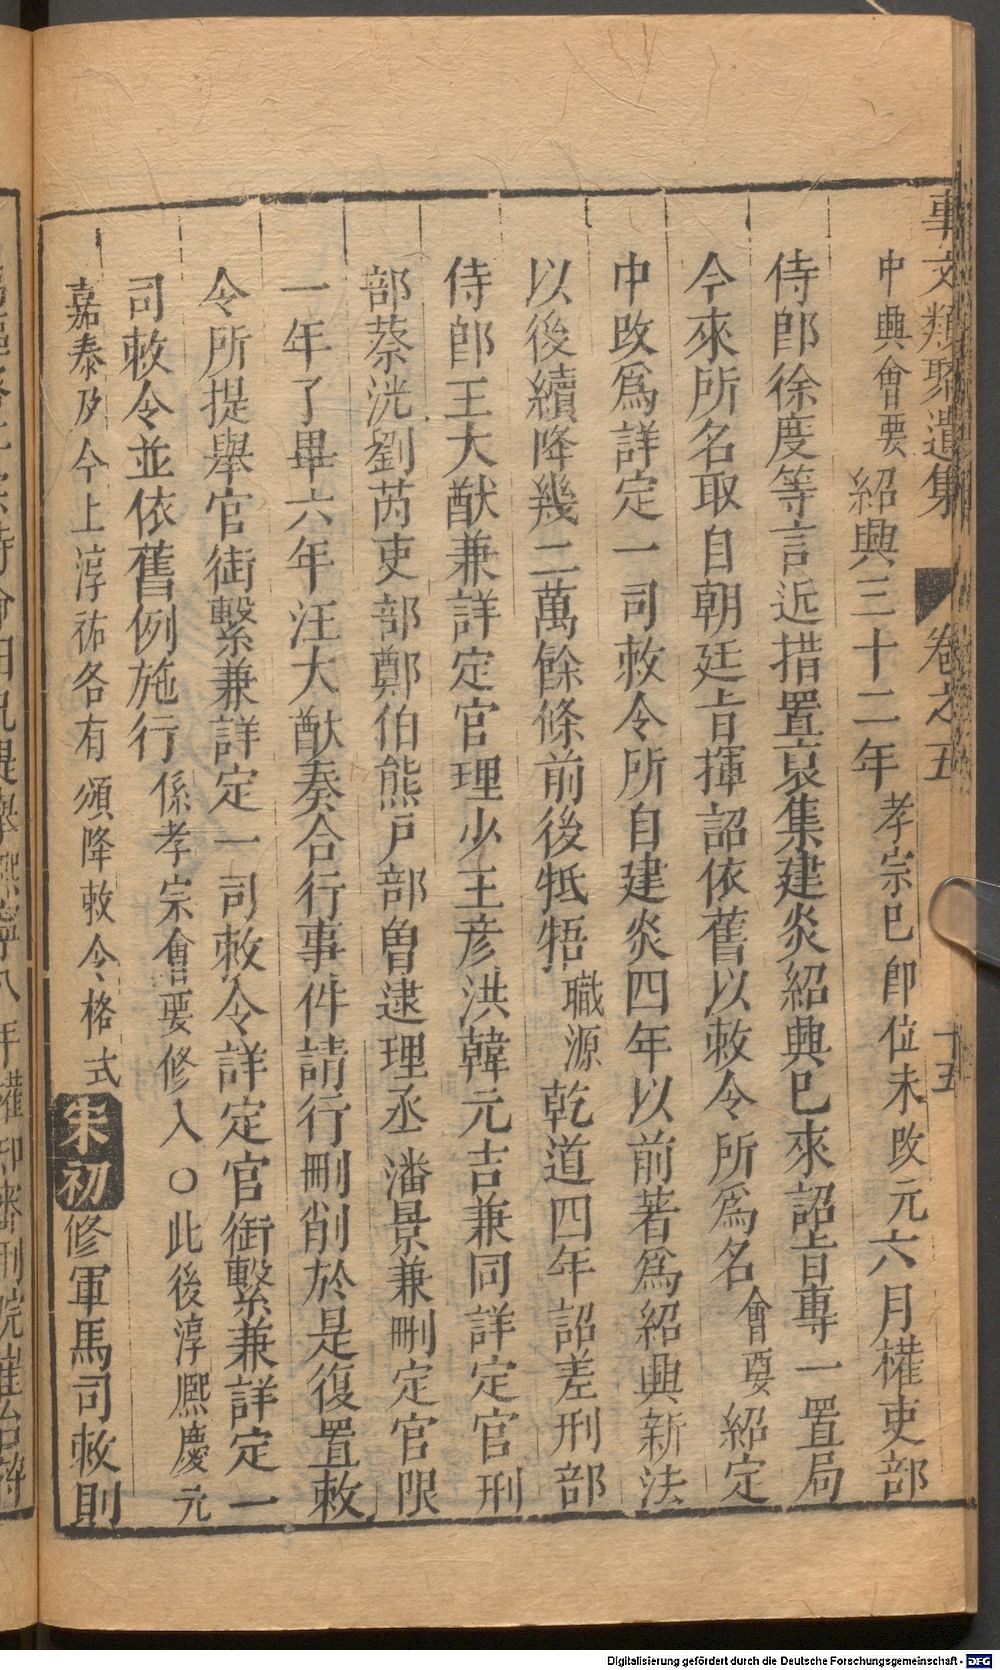 事文類聚遺集 卷之五 十五
中興會要紹興三十二年孝宗已即位未改元六月權吏部
侍郎徐度等言近措置裒集建炎紹興已來詔旨專一置局
今來所名取自朝廷旨揮詔依舊以敕令所爲名會要紹定
中改爲詳定一司敕令所自建炎四年以前著爲紹興新法
以後續降幾二萬餘條前後牴牾職源乾道四年詔差刑部
侍郎王大猷兼詳定官理少王彦洪韓元吉兼同詳定官刑
部蔡洸劉芮吏部鄭伯熊戸部曾逮理丞潘景兼刪定官限
一年了畢六年汪大猷奏合行事件請行刪削於是復置敕
令所提舉官銜繫兼詳定一司敕令詳定官銜繫兼詳定一
司敕令並依舊例施行係孝宗會要修入○此後淳熈慶元
嘉泰及今上淳祐各有頒降敕令格式宋初修軍馬司敕則
Digitalisierung gefördert durch die Deutsche Forschungsgemeinschaft - DFG